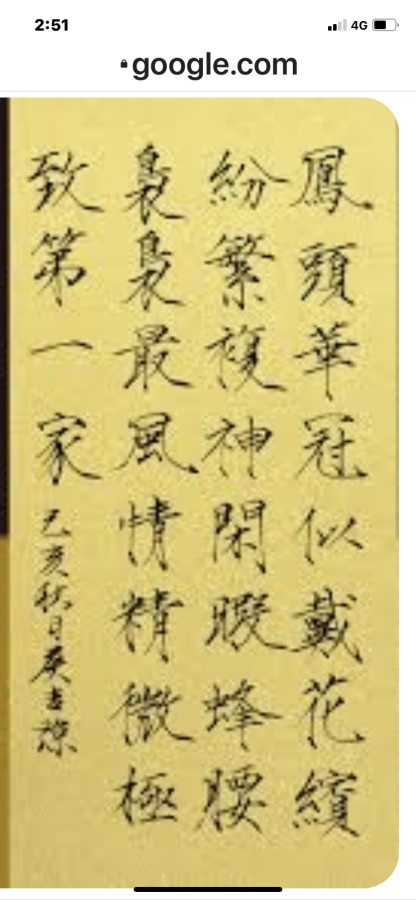 2:51
4G
google.com
鳳頭華冠似戴花繽
紛繁複神閑暇蜂腰
裊裊最風情精微極
致第一家
己亥秋日侯吉諒